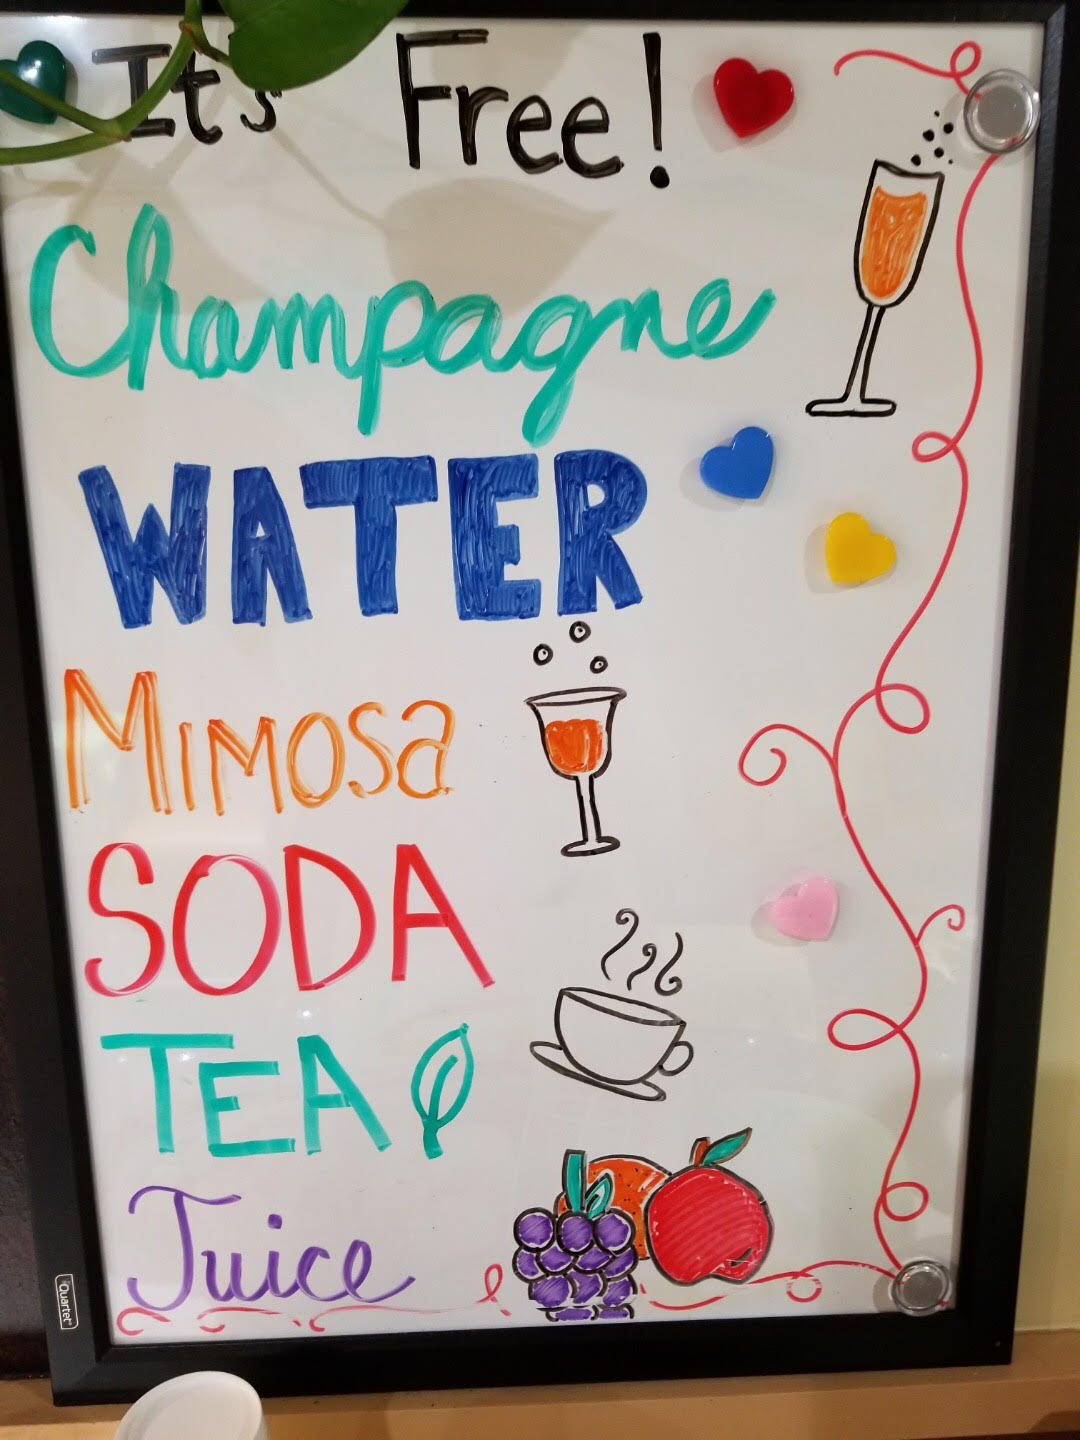 It's Free!
Champagne
WATER
MIMOSa
SODA
TEA
Juice
Quartet